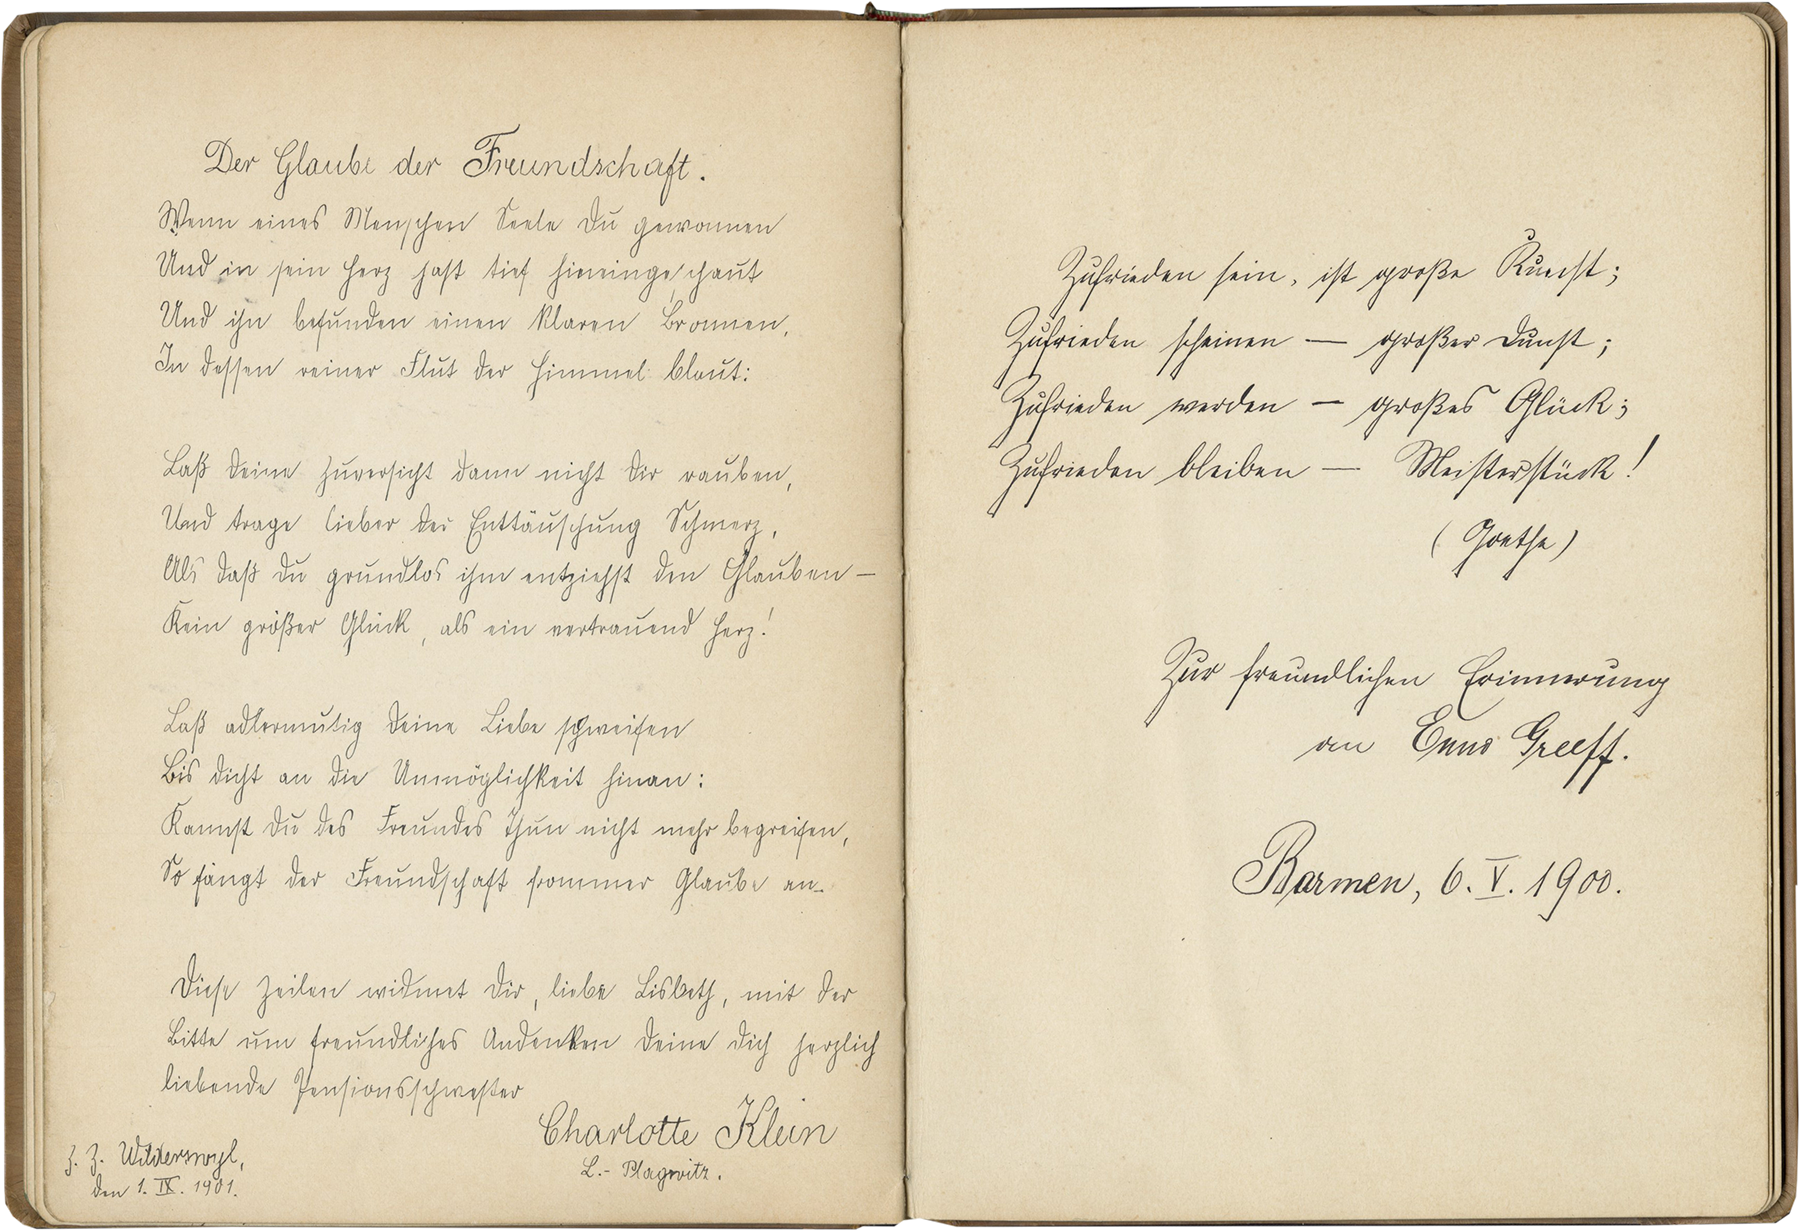 Der Glaube der Freundschaft.
Wenn eines Menschen Seele Du gewonnen
Und in sein Herz hast tief hineingeschaut
Und ihn befunden einen klaren Bronnen,
In dessen reiner Flut der Himmel blaut:
Laß Deine Zuversicht dann nicht Dir rauben,
Und trage lieber der Enttäuschung Schmerz,
Als daß Du grundlos ihm entziehst den Glauben —
Kein größer Glück, als ein vertrauend Herz!
Laß adlermutig Deine Liebe schweifen
Bis dicht an die Unmöglichkeit hinan:
Kannst Du des Freundes Thun nicht mehr begreifen,
So fängt der Freundschaft frommer Glaube an.
Diese Zeilen widmet Dir, liebe Lisbeth, mit der
Bitte um freundliches Andenken Deine Dich herzlich
liebende Pensionsschwester
Charlotte Klein
L.- Plagwitz.
z. Z. Wilderswyl,
den 1. IX. 1901.
Zufrieden sein, ist große Kunst;
Zufrieden scheinen — großer Dunst;
Zufrieden werden — großes Glück;
Zufrieden bleiben — Meisterstück!
(Goethe)
Zur freundlichen Erinnerung
an Enno Greeff.
Barmen, 6. V. 1900.